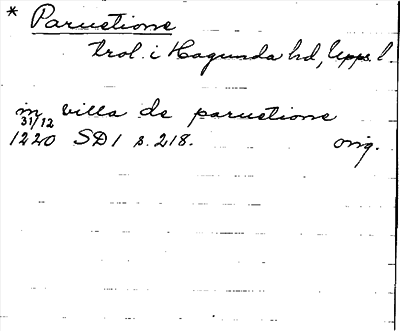 * Paruetions
trol. i Hagunda hd, Upps. l.
in villa de paruetions
31/12
1220 SD 1 s. 218. orig.